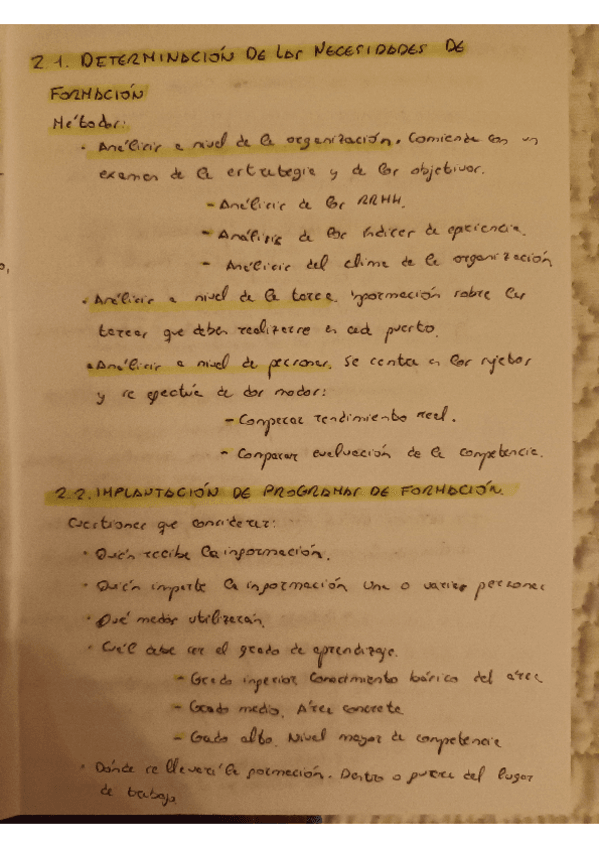 2.1. DETERMINACIÓN DE LAS NECESIDADES DE
FORMACIÓN
Métodos:
· Análisis a nivel de la organización. Comienza con un
examen de la estrategia y de los objetivos.
- Análisis de los RRHH.
- Análisis de los índices de eficiencia.
- Análisis del clima de la organización
· Análisis a nivel de la tarea. Información sobre las
tareas que deben realizarse en cada puesto.
· Análisis a nivel de personas. Se centra en los sujetos
y se efectúa de dos modos:
- Comparar rendimiento real.
- Comparar evaluación de la competencia.
2.2. IMPLANTACIÓN DE PROGRAMAS DE FORMACIÓN.
Cuestiones que considerar:
· Quién recibe la información.
· Quién imparte la información una o varias personas
· Qué medios utilizarán.
· Cuál debe ser el grado de aprendizaje.
- Grado inferior. Conocimiento básico del área
- Grado medio. Área concreta
- Grado alto. Nivel mayor de competencia
· Dónde se llevará la formación. Dentro o fuera del lugar
de trabajo.